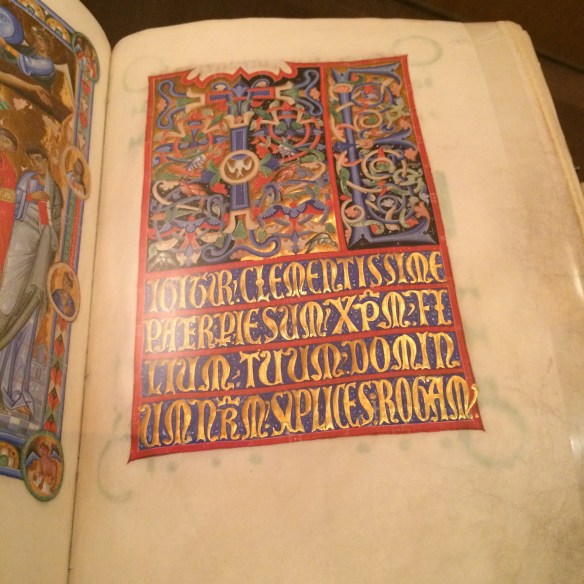 TE
IGITUR·CLEMENTISSIME
PATER P IESUM·XP̄M·FI
LIUM·TUUM·DOMIN
UM·NR̄M·SUPLICES·ROGAM